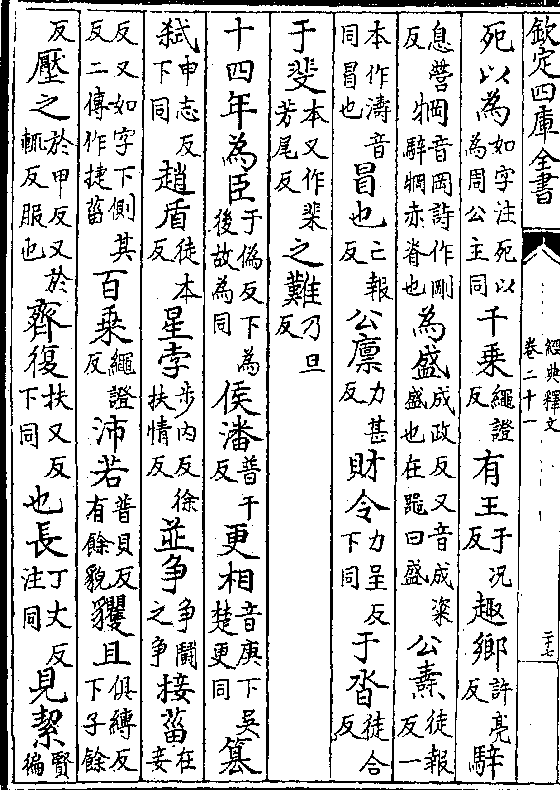 欽定四庫全書
經典釋文
卷二十一
二十七
死以為如字注死以為周公主同千乘繩證反有王于況反趣鄉許亮反騂
息營反犅音岡詩作剛騂犅赤脊也為盛成政反又音成粢盛也在器曰盛公燾徒報反一
本作濤音同冒也冒也亡報反公廩力甚反財令力呈反下同于沓徒合反
于斐本又作棐芳尾反之難乃旦反
十四年為臣于偽反下為後故為同侯潘普干反更相音庚下吳楚更同篡
弒申志反下同趙盾徒本反星孛步內反徐扶情反並爭爭鬬之爭接菑在妾
反又如字下側其反二傳作捷菑百乘繩證反沛若普貝反有餘貌貜且俱縛反下子餘
反壓之於甲反又於輒反服也齊復扶又反下同也長丁丈反注同見絜賢徧